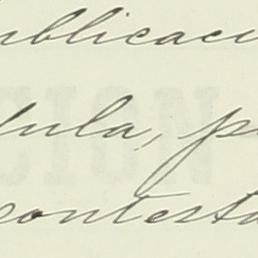 ublicaci
lula, p
contesta